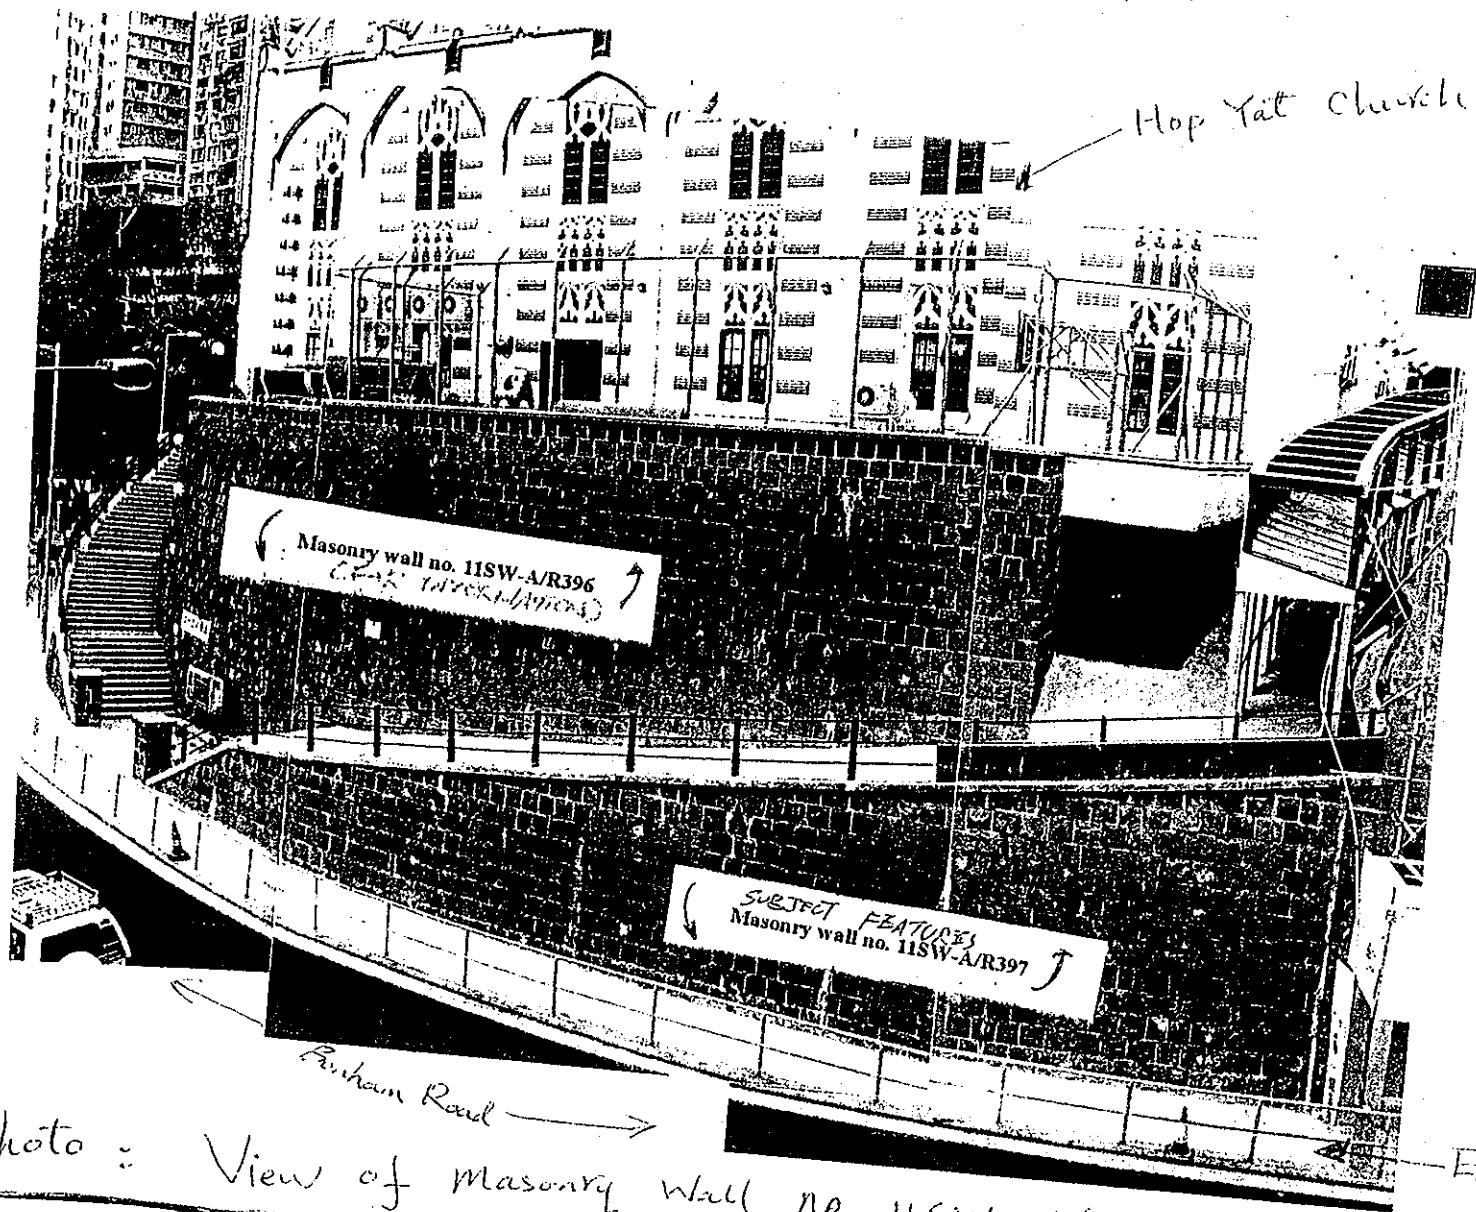 Hop Yat Church
Masonry wall no. 11SW-A/R396
SUBJECT FEATURES
Masonry wall no. 11SW-A/R397
Road
hoto : View of Masonry Wall no
E